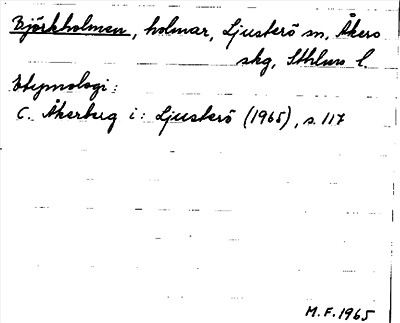 Björkholmen, holmar, Ljusterö sn, Åkers
skg, Sthlms l.
Etymologi:
C. Åkerberg i: Ljusterö (1965), s. 117
M.F. 1965